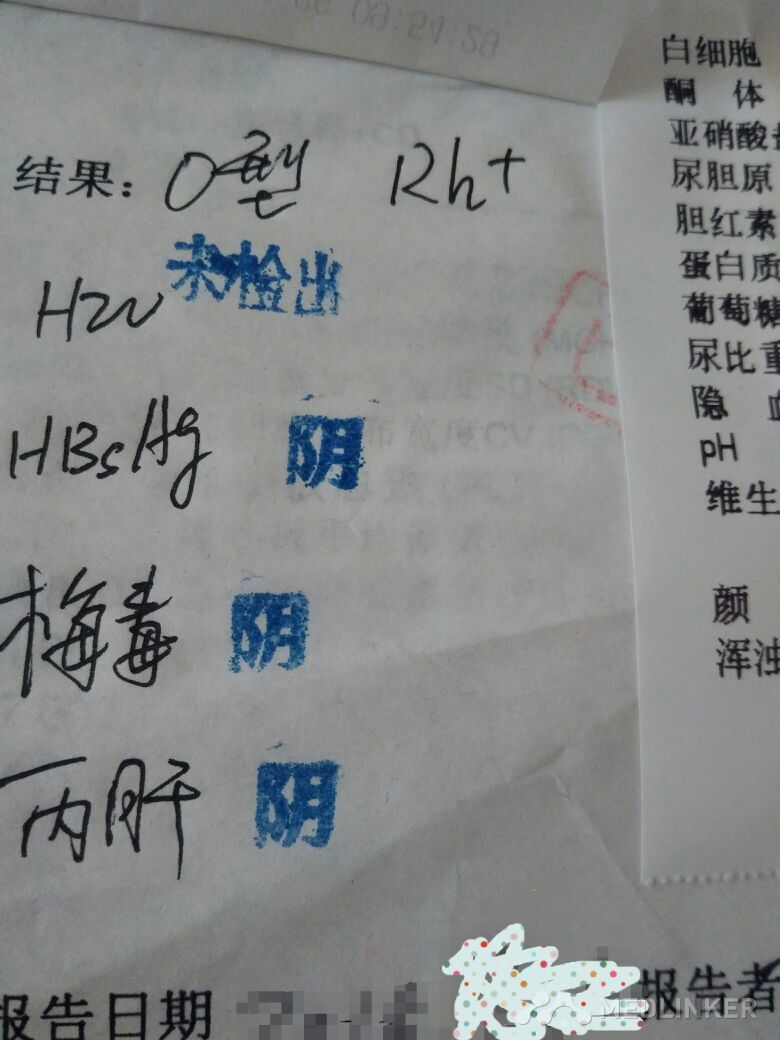 09:54:20
结果: O型 Rh+
HIV 未检出
HBsAg 阴
梅毒 阴
丙肝 阴
报告日期
报告者
白细胞
酮 体
亚硝酸
尿胆原
胆红素
蛋白质
葡萄糖
尿比重
隐
pH
维生
颜
浑浊
MEDLINKER